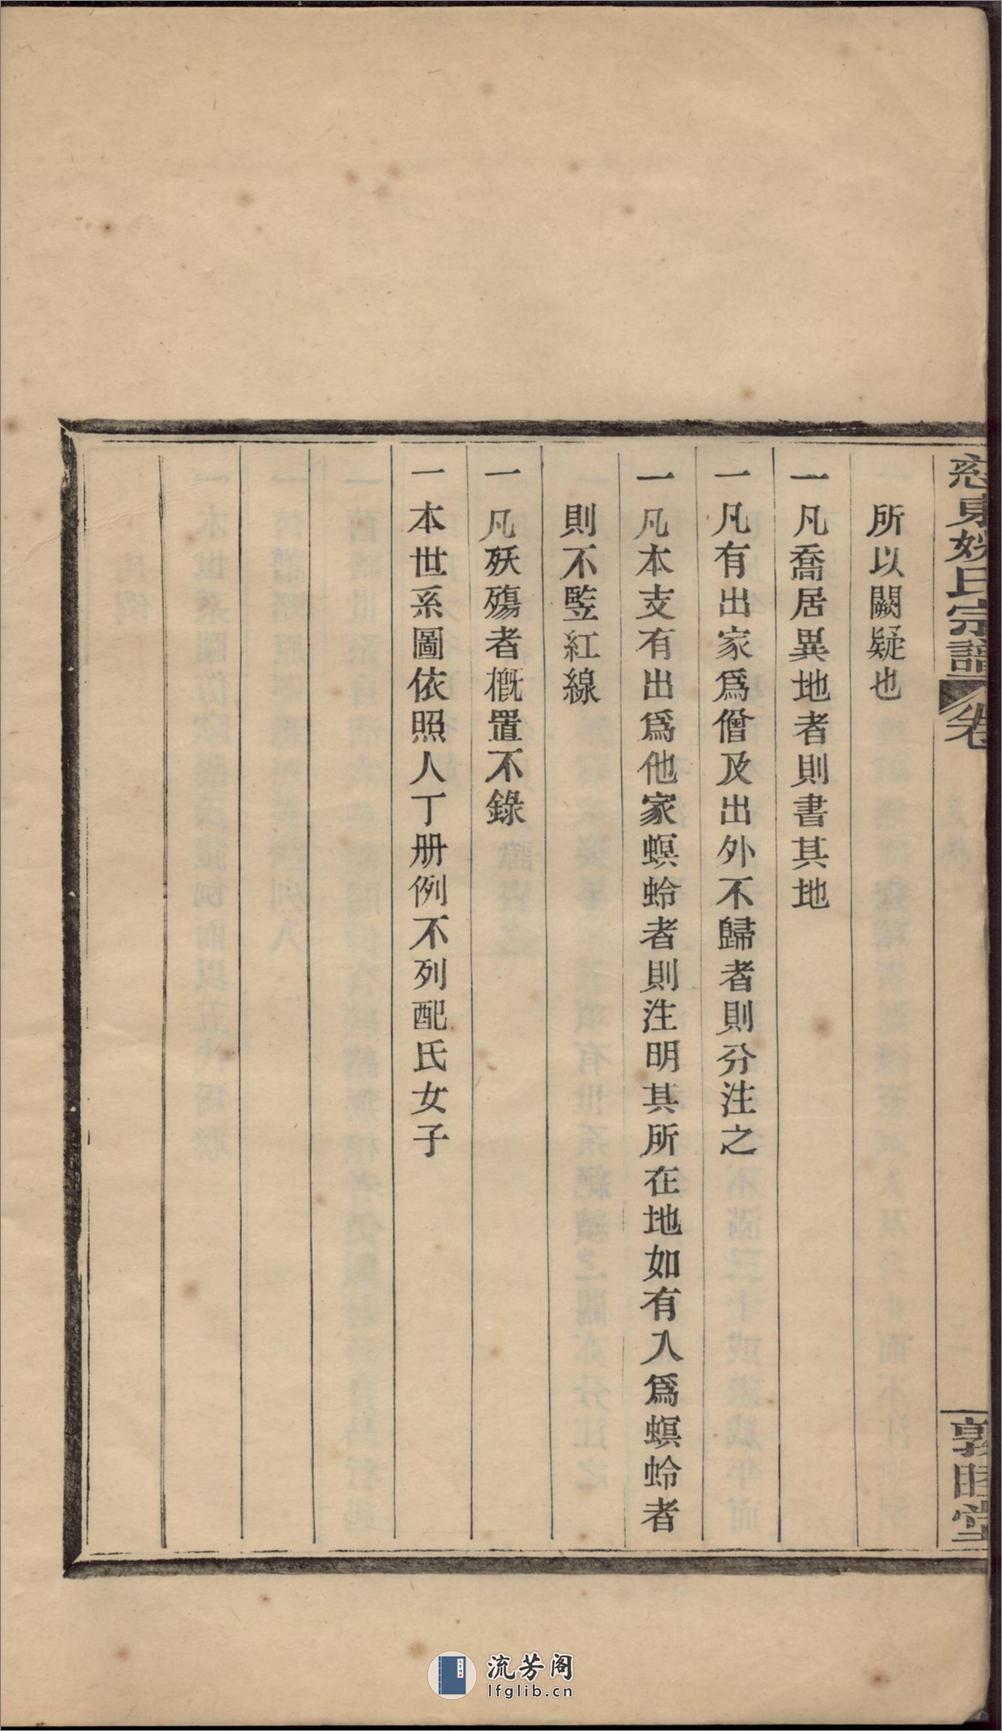 慈東姚氏宗譜 卷
敦睦堂
所以闕疑也
一凡喬居異地者則書其地
一凡有出家爲僧及出外不歸者則分注之
一凡本支有出爲他家螟蛉者則注明其所在地如有入爲螟蛉者
則不監紅線
一凡殀殤者槪置不錄
一本世系圖依照人丁册例不列配氏女子
流芳阁
lfglib.cn